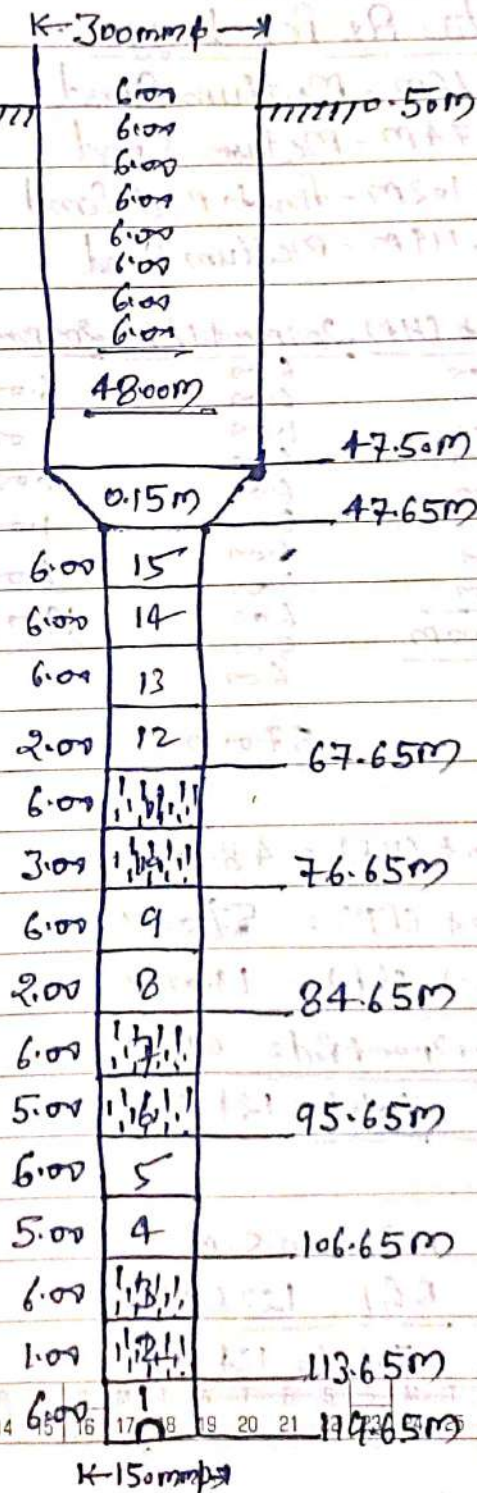 300mmϕ
6.00
0.50m
6.00
6.00
6.00
6.00
6.00
6.00
6.00
48.00m
47.50m
0.15m
47.65m
6.00 15
6.00 14
6.00 13
2.00 12
67.65m
6.00 11
3.00 10
76.65m
6.00 9
2.00 8
84.65m
6.00 7
5.00 6
95.65m
6.00 5
5.00 4
106.65m
6.00 3
1.00 2
113.65m
6.00 1
14 15 16 17 18 19 20 21 22 23 24 25
119.65m
150mmϕ